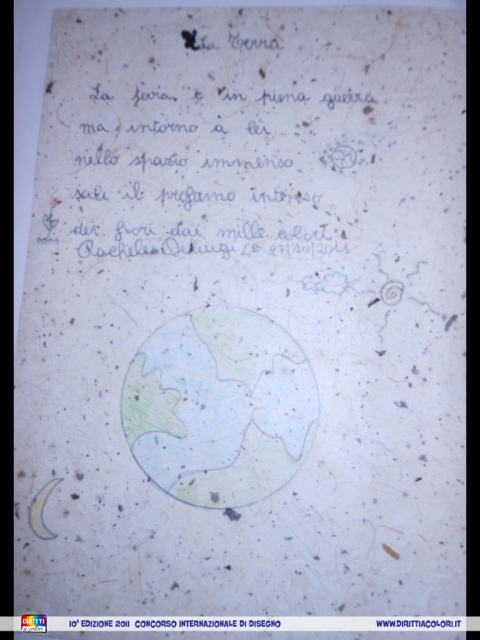 La Terra
La terra è in piena guerra
ma intorno a lei
nello spazio immenso
sale il profumo intenso
dei fiori dai mille colori.
Rachele 27/10/2011
DIRITTI a colori
10ª EDIZIONE 2011 CONCORSO INTERNAZIONALE DI DISEGNO
WWW.DIRITTIACOLORI.IT